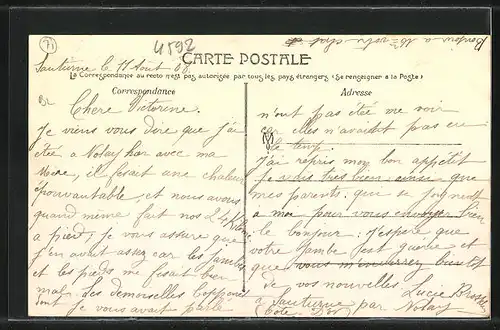 71
4592
Bonjour a
CARTE POSTALE
Sauturne le 11 Aout 08
La Correspondance au recto n'est pas autorisée par tous les pays étrangers (Se renseigner à la Poste)
Correspondance
Adresse
Chere Victorine.
Je viens vous dire que j'ai
étée a Nolay hier avec ma
Mère, il fesait une chaleur
épouvantable, et nous avons
quand même fait nos
a pied, je vous assure que
j'en avait assez car les jambes
et les pieds me fesait bien
mal. Les demoiselles
dont je vous avait parlé
n'ont pas étée me voir
car elles n'avaient pas eu
le temp.
J'ai repris mon bon appétit
je suis très bien ainsi que
mes parents qui se joignent
a moi pour vous envoyer bien
le bonjour; j'espère que
votre jambe est guérie et
que vous m'enverrez bientôt
de vos nouvelles
Lucie
a Sauturne par Nolay
Côte d'Or